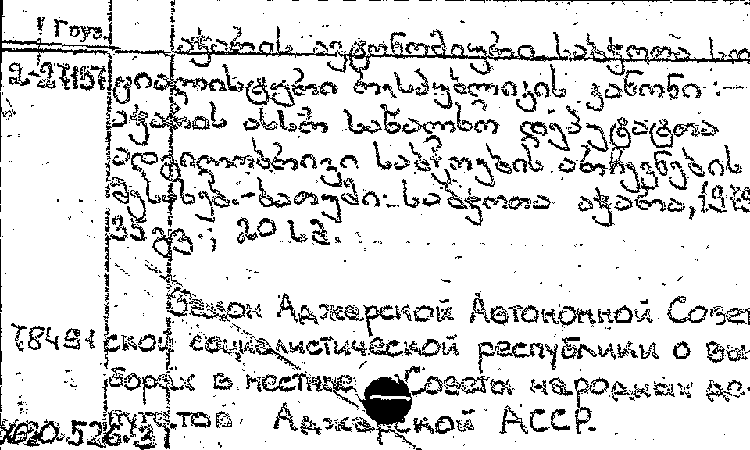 Груз.
აჭარის ავტონომიური საბჭოთა სო
2-27157 ციალისტური რესპუბლიკის კანონი:–
აჭარის ასსრ სახალხო დეპუტატთა
ადგილობრივი საბჭოების არჩევნების
შესახებ.–ბათუმი: საბჭოთა აჭარა, 1979
35 გვ.; 20 სმ.
Закон Аджарской Автономной Совет
ской социалистической республики о вы
борах в местные Советы народных де-
путатов Аджарской АССР.